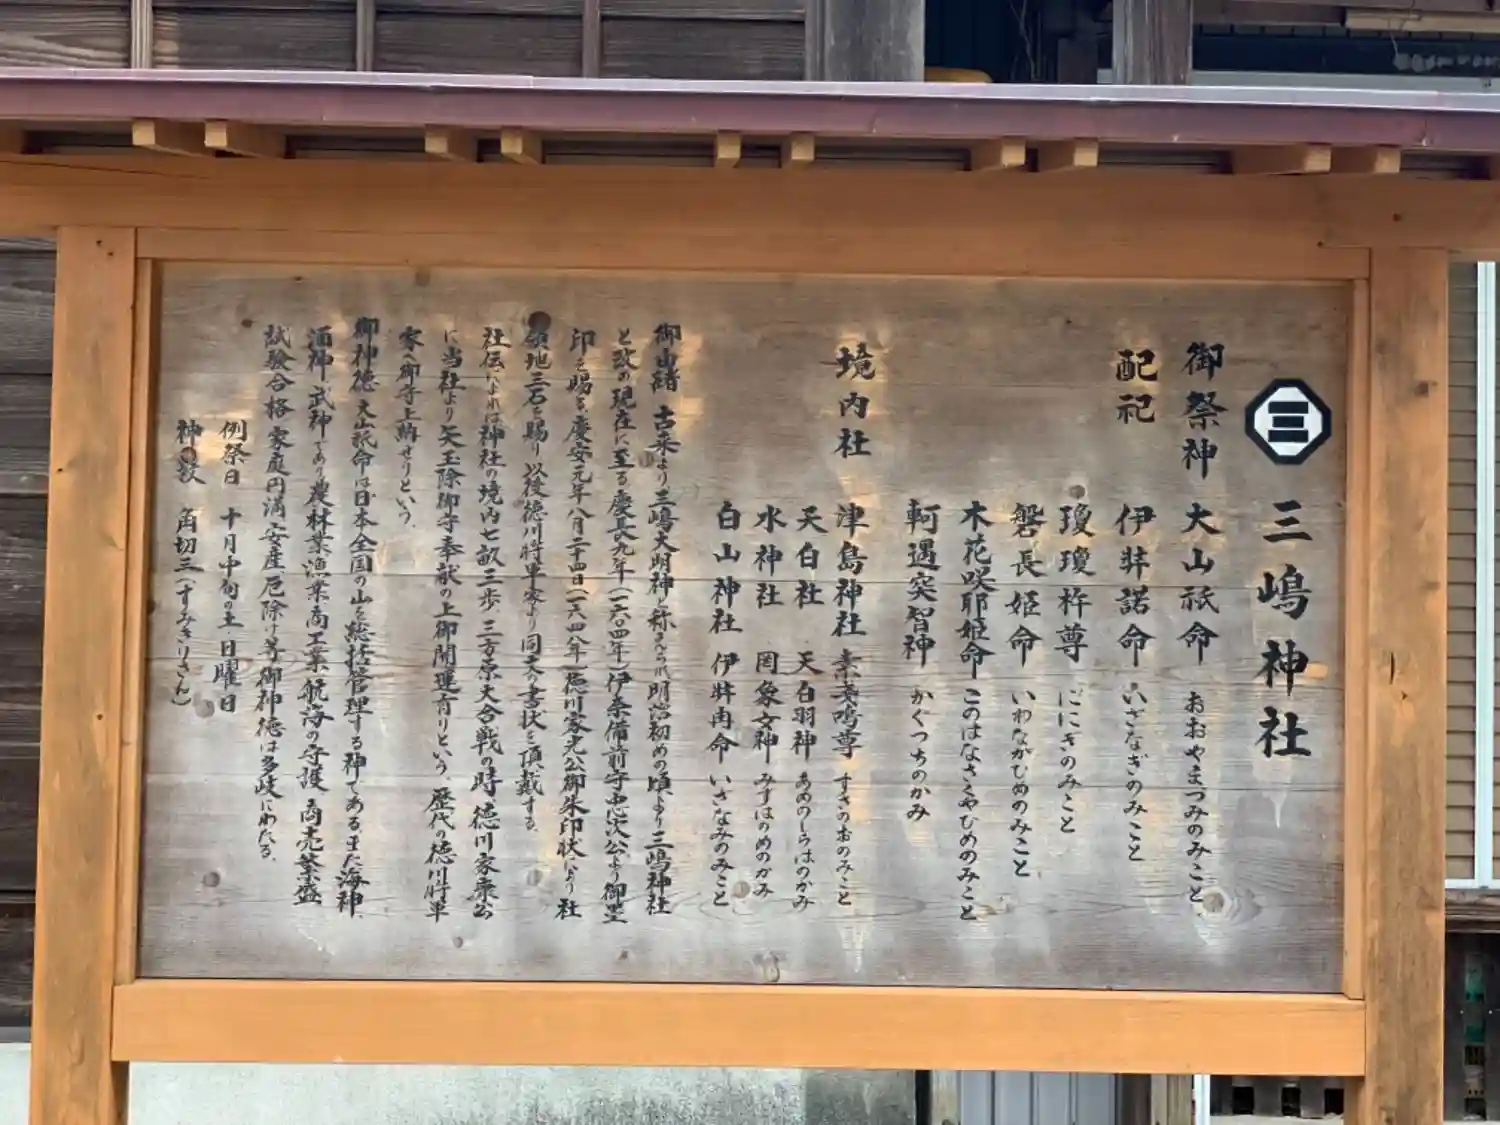 三嶋神社
御祭神 大山祇命 おおやまつみのみこと
配祀 伊弉諾命 いざなぎのみこと
瓊瓊杵尊 ににぎのみこと
磐長姫命 いわながひめのみこと
木花咲耶姫命 このはなさくやひめのみこと
軻遇突智神 かぐつちのかみ
境内社 津島神社 素戔嗚尊 すさのおのみこと
天白社 天白羽神 あめのしらはのかみ
水神社 罔象女神 みずはのめのかみ
白山神社 伊弉冉命 いざなみのみこと
御由緒 古来より三嶋大明神と称えられ明治初めの頃より三嶋神社
と改め現在に至る 慶長九年(一六〇四年)伊奈備前守忠次公より御墨
印を賜る、慶安元年八月二十四日(一六四八年)徳川家光公御朱印状により社
領地三石を賜り 以後徳川将軍家より同文の書状を頂戴する。
社伝によれば神社の境内七畝三歩 三方原大合戦の時 徳川家康公
に当社より矢玉除御守奉献の上御開運有りという。歴代の徳川将軍
家へ御守上納せりという。
御神徳 大山祇命は日本全国の山を総括管理する神である。また海神
酒神 武神であり農林業 漁業 商工業 航海の守護 商売繁盛
試験合格 家庭円満 安産 厄除け等 御神徳は多岐にわたる。
例祭日 十月中旬の土・日曜日
神の紋 角切三(すみきりさん)